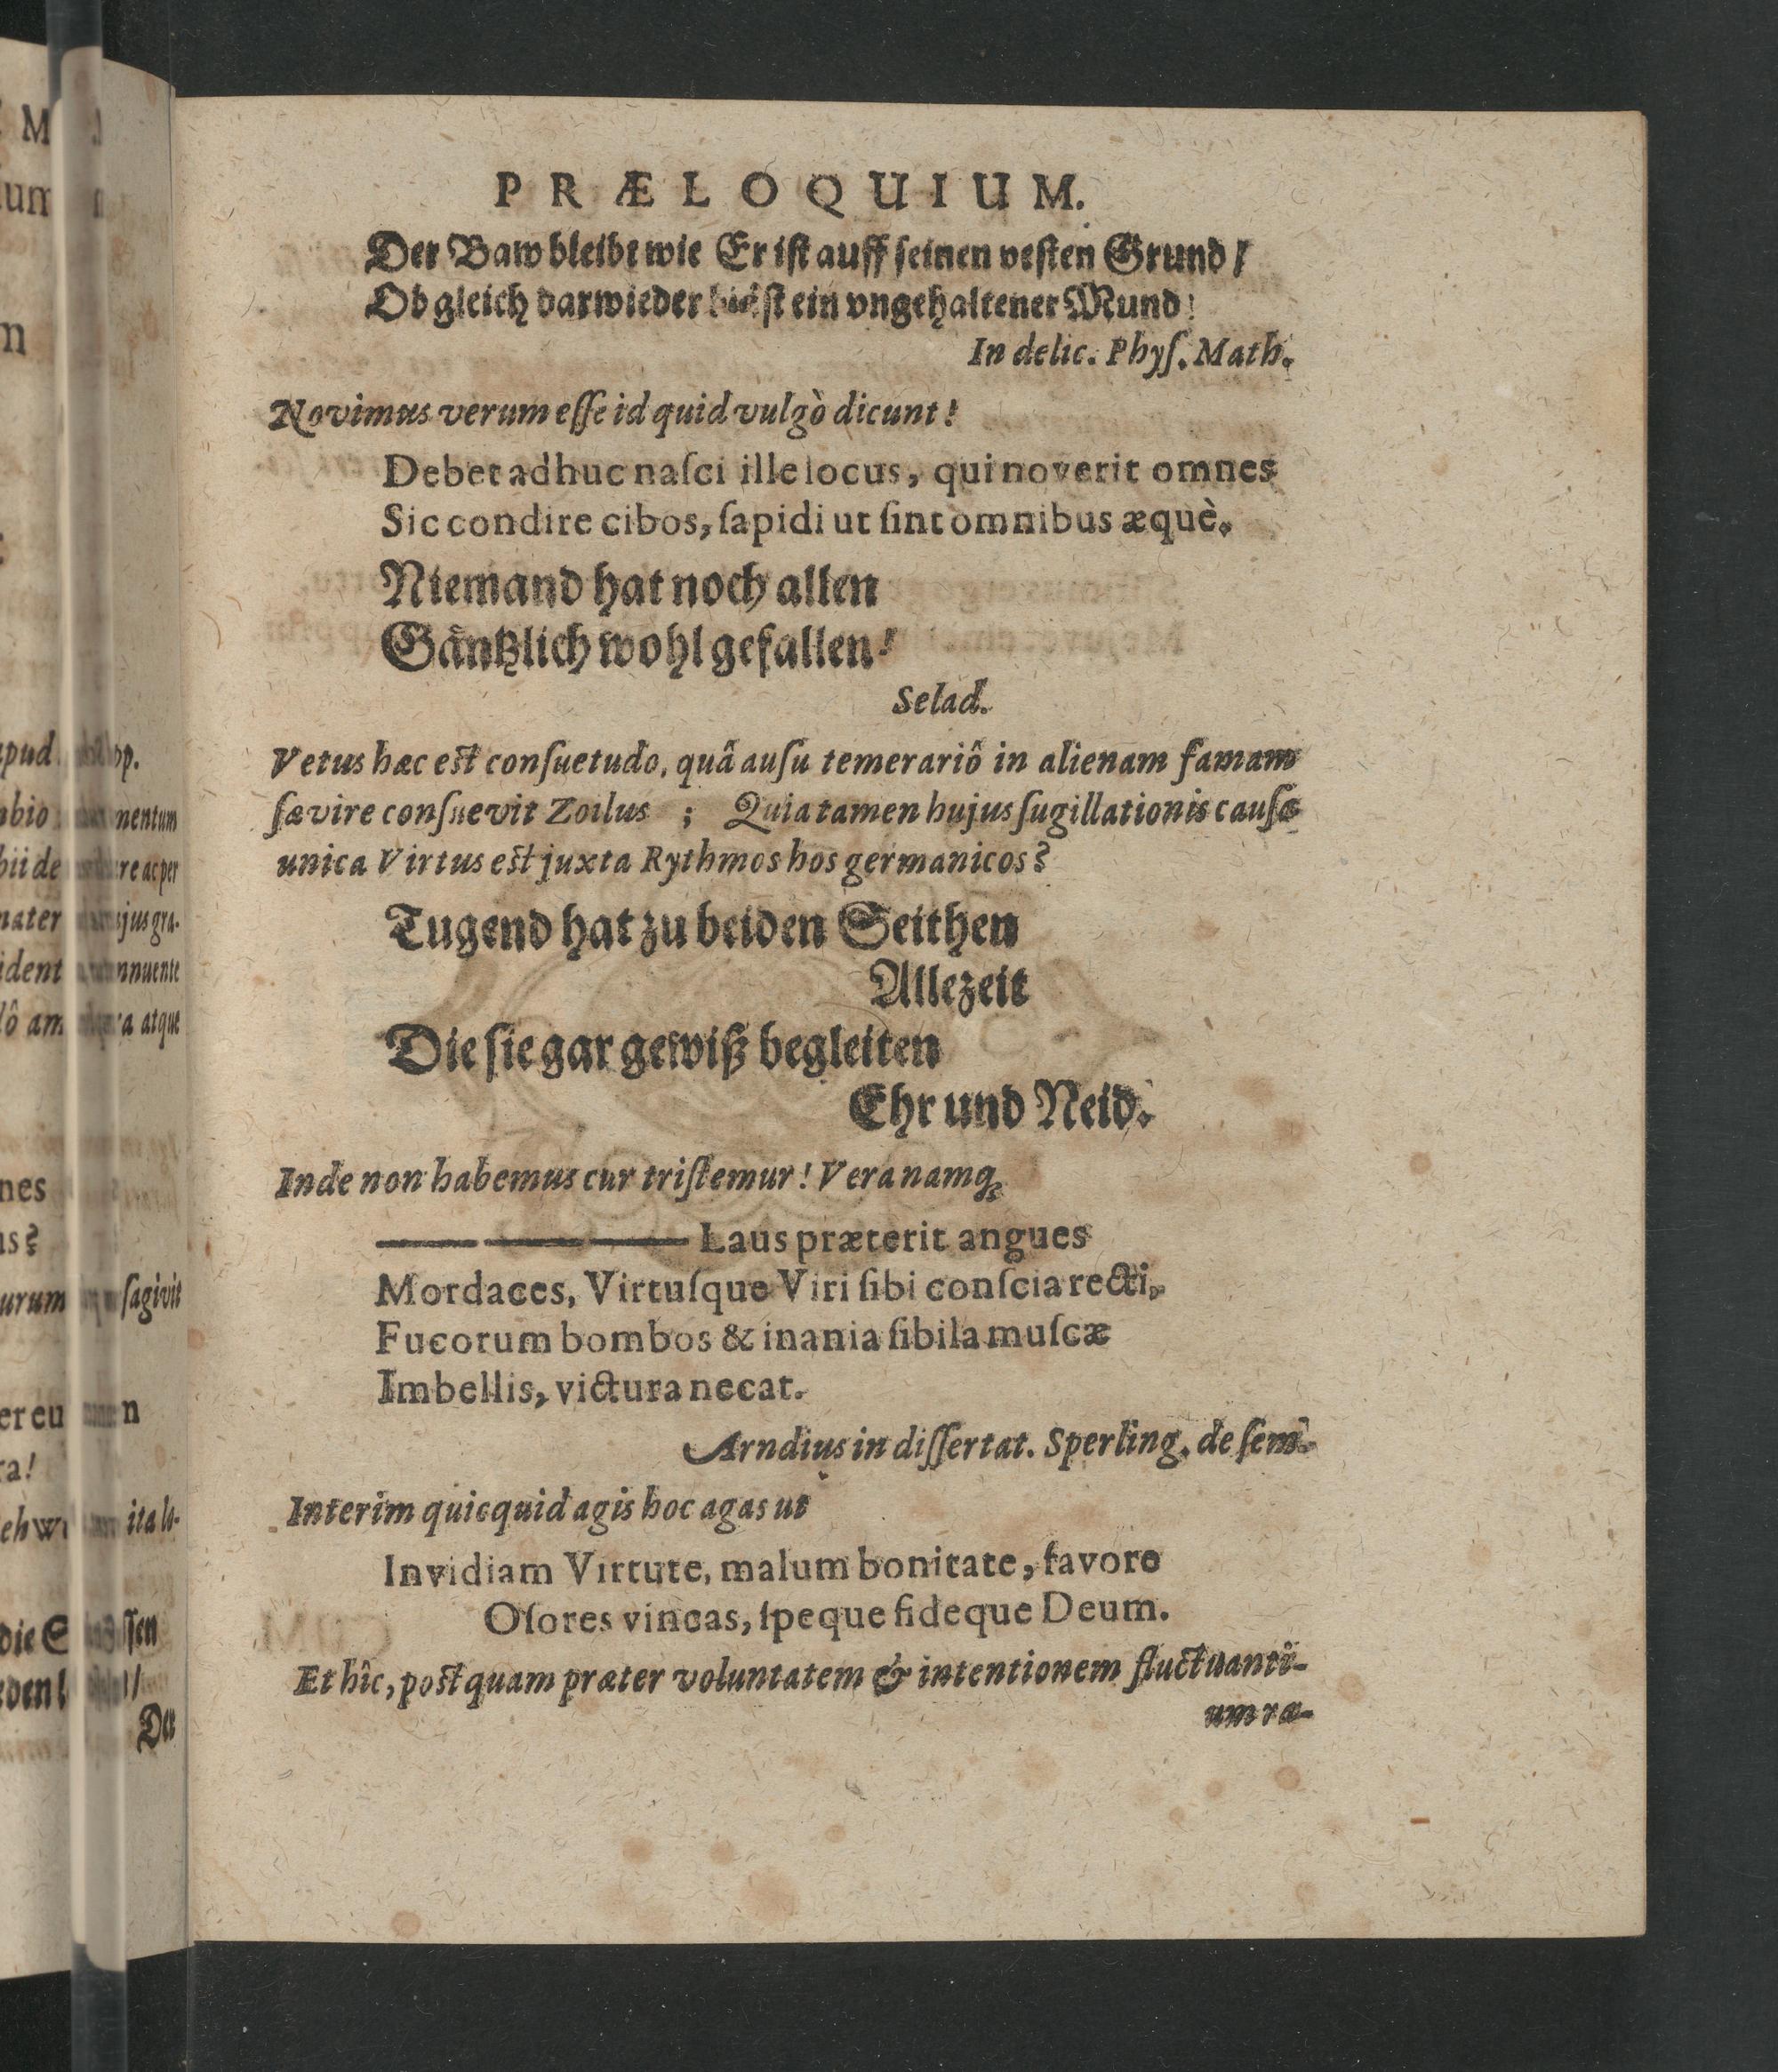 PRÆLOQUIUM.
Der Baw bleibt wie Er ist auff seinen vesten Grund /
Ob gleich darwieder ein vngehaltener Mund!
In delic. Phyſ. Math.
Novimus verum eſſe id quid vulgò dicunt!
Debet adhuc naſci ille locus, qui noverit omnes
Sic condire cibos, ſapidi ut ſint omnibus æquè.
Niemand hat noch allen
Gäntzlich wohl gefallen!
Selad.
Vetus hæc eſt conſuetudo, quâ auſu temerariô in alienam famam
ſævire conſuevit Zoilus ; Quia tamen hujus ſugillationis cauſæ
unica Virtus eſt juxta Rythmos hos germanicos?
Tugend hat zu beiden Seithen
Allezeit
Die ſie gar gewiß begleiten
Ehr und Neid.
Inde non habemus cur triſtemur! Vera namq;
——— Laus præterit angues
Mordaces, Virtuſque Viri ſibi conſcia recti,
Fucorum bombos & inania ſibila muſcæ
Imbellis, victura necat.
Arndius in diſſertat. Sperling. de ſem.
Interim quicquid agis hoc agas ut
Invidiam Virtute, malum bonitate, favore
Oſores vincas, ſpeque fideque Deum.
Et hîc, poſtquam præter voluntatem & intentionem fluctuanti-
um ra-